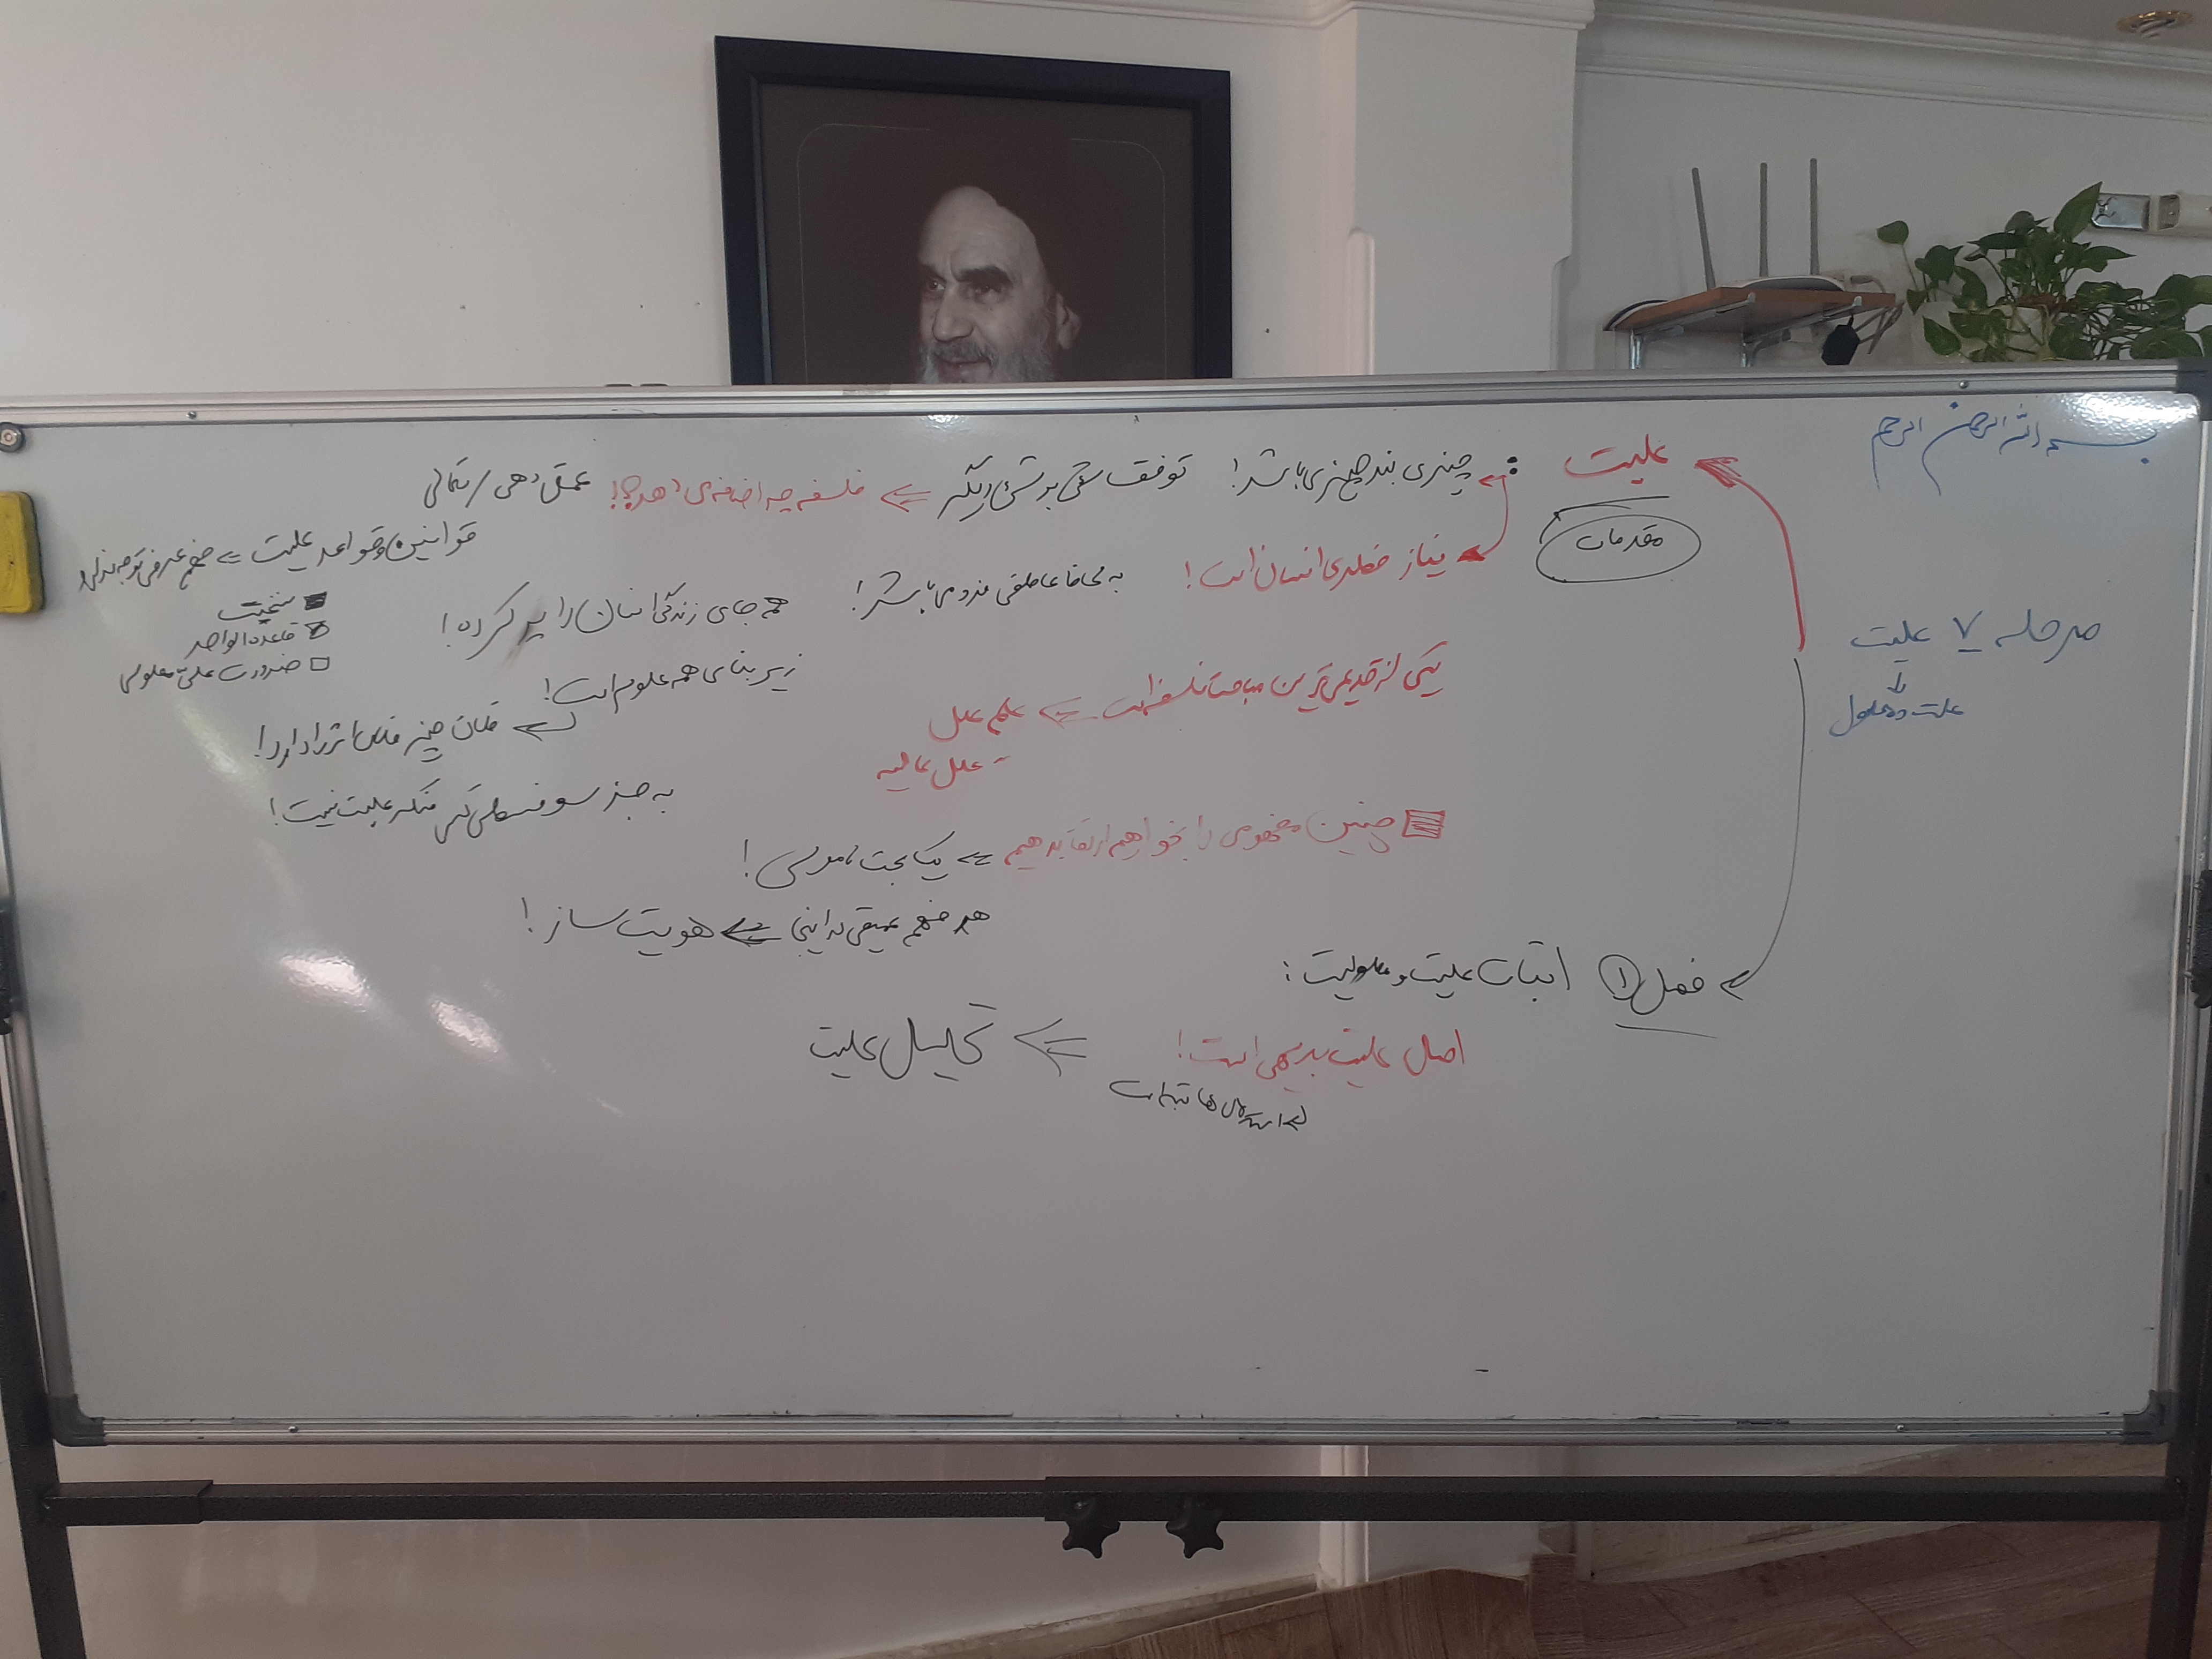 بسم الله الرحمن الرحیم
مرحله ۷ علیت
علت و معلول
علیت : چیزی بند چیزی باشد! توقف شئ بر شئ دیگر ⇐ فلسفه چه اضافه می دهد؟! عمق دهی / تعالی
مقدمات
قوانین و قواعد علیت ⇐ فهم عرفی توجه ندارد
سنخیت
قاعده الواحد
ضرورت علی معلولی
نیاز فطری انسان است! به لحاظ عاطفی هم می باشد! همه جای زندگی انسان را پر کرده!
زیر بنای همه علوم است!
فلان چیز فلان اثر را دارد!
یکی از قدیمی ترین مباحث فلسفه است ⇐ علم علل
- علل عالیه
به جز سوفسطی کسی منکر علیت نیست!
چنین مفهومی را بخواهیم ارتقا بدهیم ⇐ یک بحث ناموسی!
هر فهم عمیقی در اینجا ⇐ هویت ساز!
فصل ۱ اثبات علیت و معلولیت :
اصل علیت بدیهی است! ⇐ تحلیل علیت